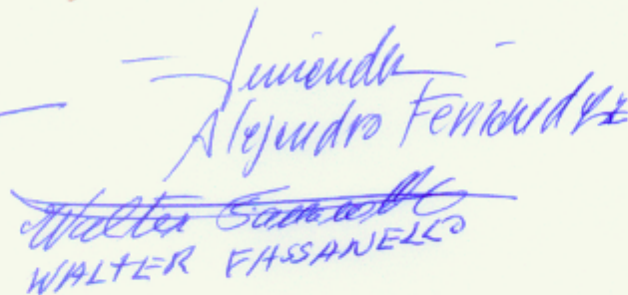 Alejandro Fernandez
Walter
WALTER FASSANELLO